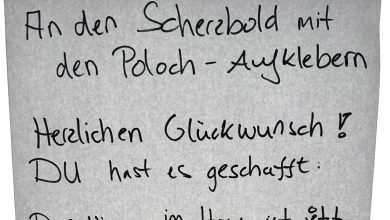 An den Scherzbold mit
den Poloch - Aufklebern
Herzlichen Glückwunsch!
DU hast es geschafft:
im